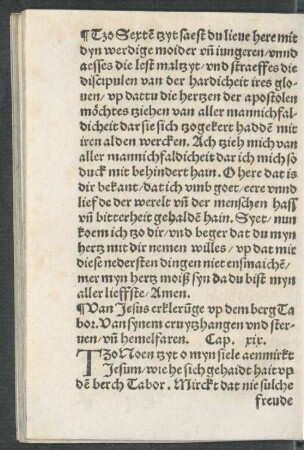 ¶Tzo Sextē tzyt saest du lieue here mit
dyn werdige moider vñ iungeren/vnnd
aesses die lest maltzyt/vnd straeffes die
discipulen van der hardicheit ires glo-
uen/vp dattu die hertzen der apostolen
moͤchtes tziehen van aller mannichfal-
dicheit dar sie sich tzogekert haddē mit
iren alden wercken. Ach tzieh mich van
aller mannichfaldicheit dar ich mich so
duck mit behindert hain. O here dat is
dir bekant/dat ich vmb goet/eere vnnd
lief de der werelt vñ der menschen hass
vñ bitterheit gehaldē hain. Syet/nun
koem ich tzo dir/vnd beger dat du myn
hertz mit dir nemen willes/vp dat mit
diese nedersten dingen niet ensinaichē/
mer myn hertz moiß syn da du bist myn
aller lieffste/Amen.
¶Van Jesus erklerūge vp dem berg Ta
bor. Van synem cruytzhangen vnd ster-
uen/vñ hemelfaren. Cap. xix.
TZo Noen tzyt o myn siele aenmirckt
Jesum/wie he sich gehaidt hait vp
dē berch Tabor. Mirckt dat nie sulche
freude